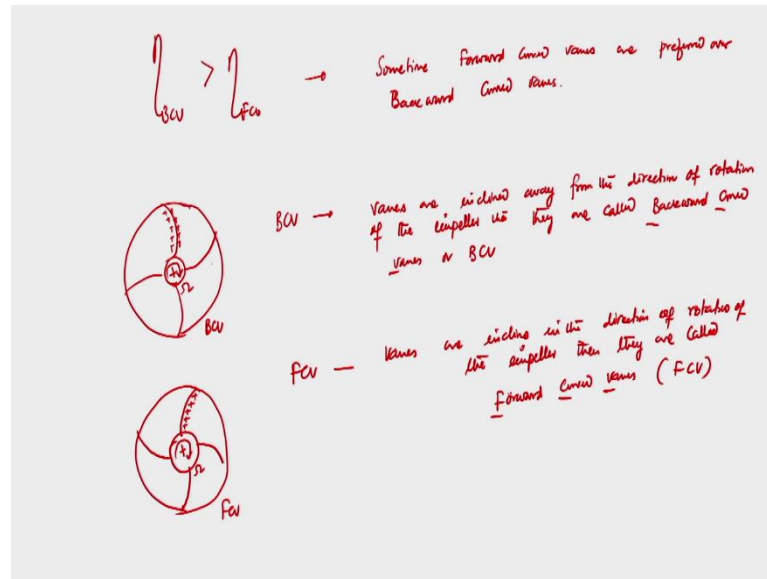 η BCV > η FCV → Sometime forward curved vanes are preferred over
Backward Curved vanes.
BCV → vanes are inclined away from the direction of rotation
of the impeller the they are called Backward Curved
vanes or BCV
Ω
BCV
FCV — vanes are incline in the direction of rotation of
the impeller then they are called
forward curved vanes (FCV)
Ω
FCV